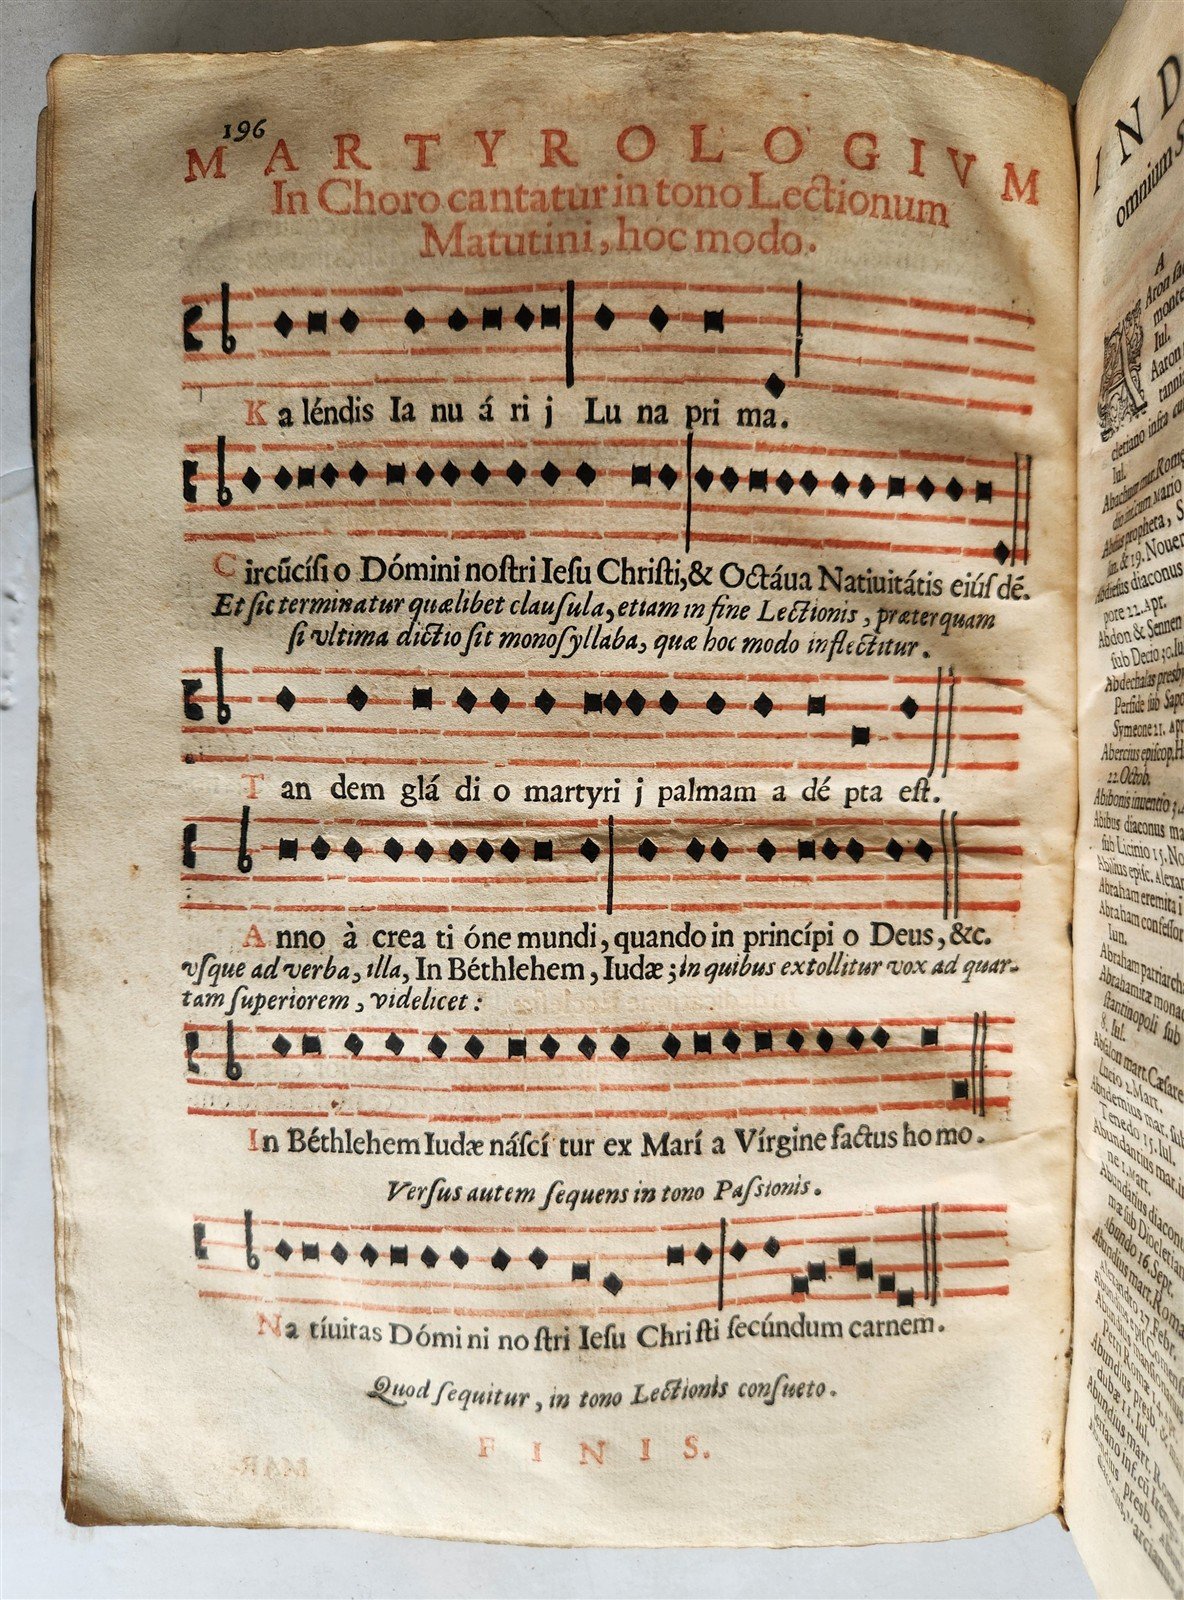 196
MARTYROLOGIVM
In Choro cantatur in tono Lectionum
Matutini, hoc modo.
Ka léndis Ia nu á ri j Lu na pri ma.
Circũcíſi o Dómini noſtri Ieſu Chriſti, & Octáua Natiuitátis eiúſ dē.
Et ſic terminatur quælibet clauſula, etiam in fine Lectionis, præterquam
ſi vltima dictio ſit monoſyllaba, quæ hoc modo inflectitur.
Tan dem glá di o martyri j palmam a dé pta eſt.
Anno à crea ti óne mundi, quando in princípi o Deus, &c.
vſque ad verba, illa, In Béthlehem, Iudæ; in quibus extollitur vox ad quar-
tam ſuperiorem, videlicet:
In Béthlehem Iudæ náſcí tur ex Marí a Vírgine factus ho mo.
Verſus autem ſequens in tono Paſsionis.
Na tíuitas Dómi ni no ſtri Ieſu Chri ſti ſecúndum carnem.
Quod ſequitur, in tono Lectionis conſueto.
FINIS.
IND
omnium S
A
Aron
monte
Iul.
Aaron
cletiano infra
Iul.
Abachum mar. Rome
Abdias propheta, S
& 19. Nouem
Abdieſus diaconus
pore 22. Apr.
Abdon & Sennen
ſub Decio 30. Iul
Abdechalas presby
Perſide ſub Sapo
Symeone 21. Apr
Abercius epiſcop. H
22. Octob.
Abibonis inuentio 3.
Abibus diaconus ma
ſub Licinio 15. No
Abilius epiſc. Alexan
Abraham eremita i
Abraham confeſſor
Iun.
Abraham patriarcha
Abrahamitæ monac
ſtantinopoli ſub
8. Iul.
Abſalon mart. Cæſare
Lucio 2. Mart.
Abudemius mar. ſub
Tenedo 15. Iul.
Abundantius mar. in
ne 1. Mart.
Abundarius diaconu
mæ ſub Diocletian
Abundo 16. Sept.
Abundius mart. Roma
Alexandro 27. Febr.
Abundius epiſ. Comenſi